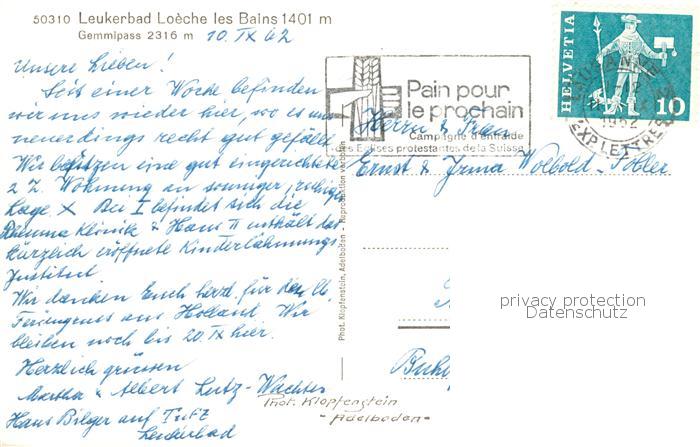 50310 Leukerbad Loèche les Bains 1401 m
Gemmipass 2316 m
10 IX 62
Unsere Lieben!
Seit einer Woche befinden
wir uns wieder hier, wo es uns
neuerdings recht gut gefällt
Wir besitzen eine gut eingerichtete
2 Z. Wohnung an sonniger, ruhiger
Lage X Bei I befindet sich die
Rheuma Klinik & Haus II enthält das
kürzlich eröffnete Kinderlähmungs
Institut
Wir danken Euch herzl. für den lb.
Feriengruss aus Holland. Wir
bleiben noch bis 20. IX hier.
Herzlich grüssen
Martha & Albert Lutz-Wachter
Haus Bilger auf
Leukerbad
Phot. Klopfenstein, Adelboden - Reproduktion verboten
Phot. Klopfenstein
- Adelboden -
Pain pour
le prochain
Campagne d'entraide
des Eglises protestantes de la Suisse
HELVETIA
10
LAUSANNE
1962
EXP LETTRES
Herrn & Frau
Ernst & Irma Wolbold-Tobler
privacy protection
Datenschutz